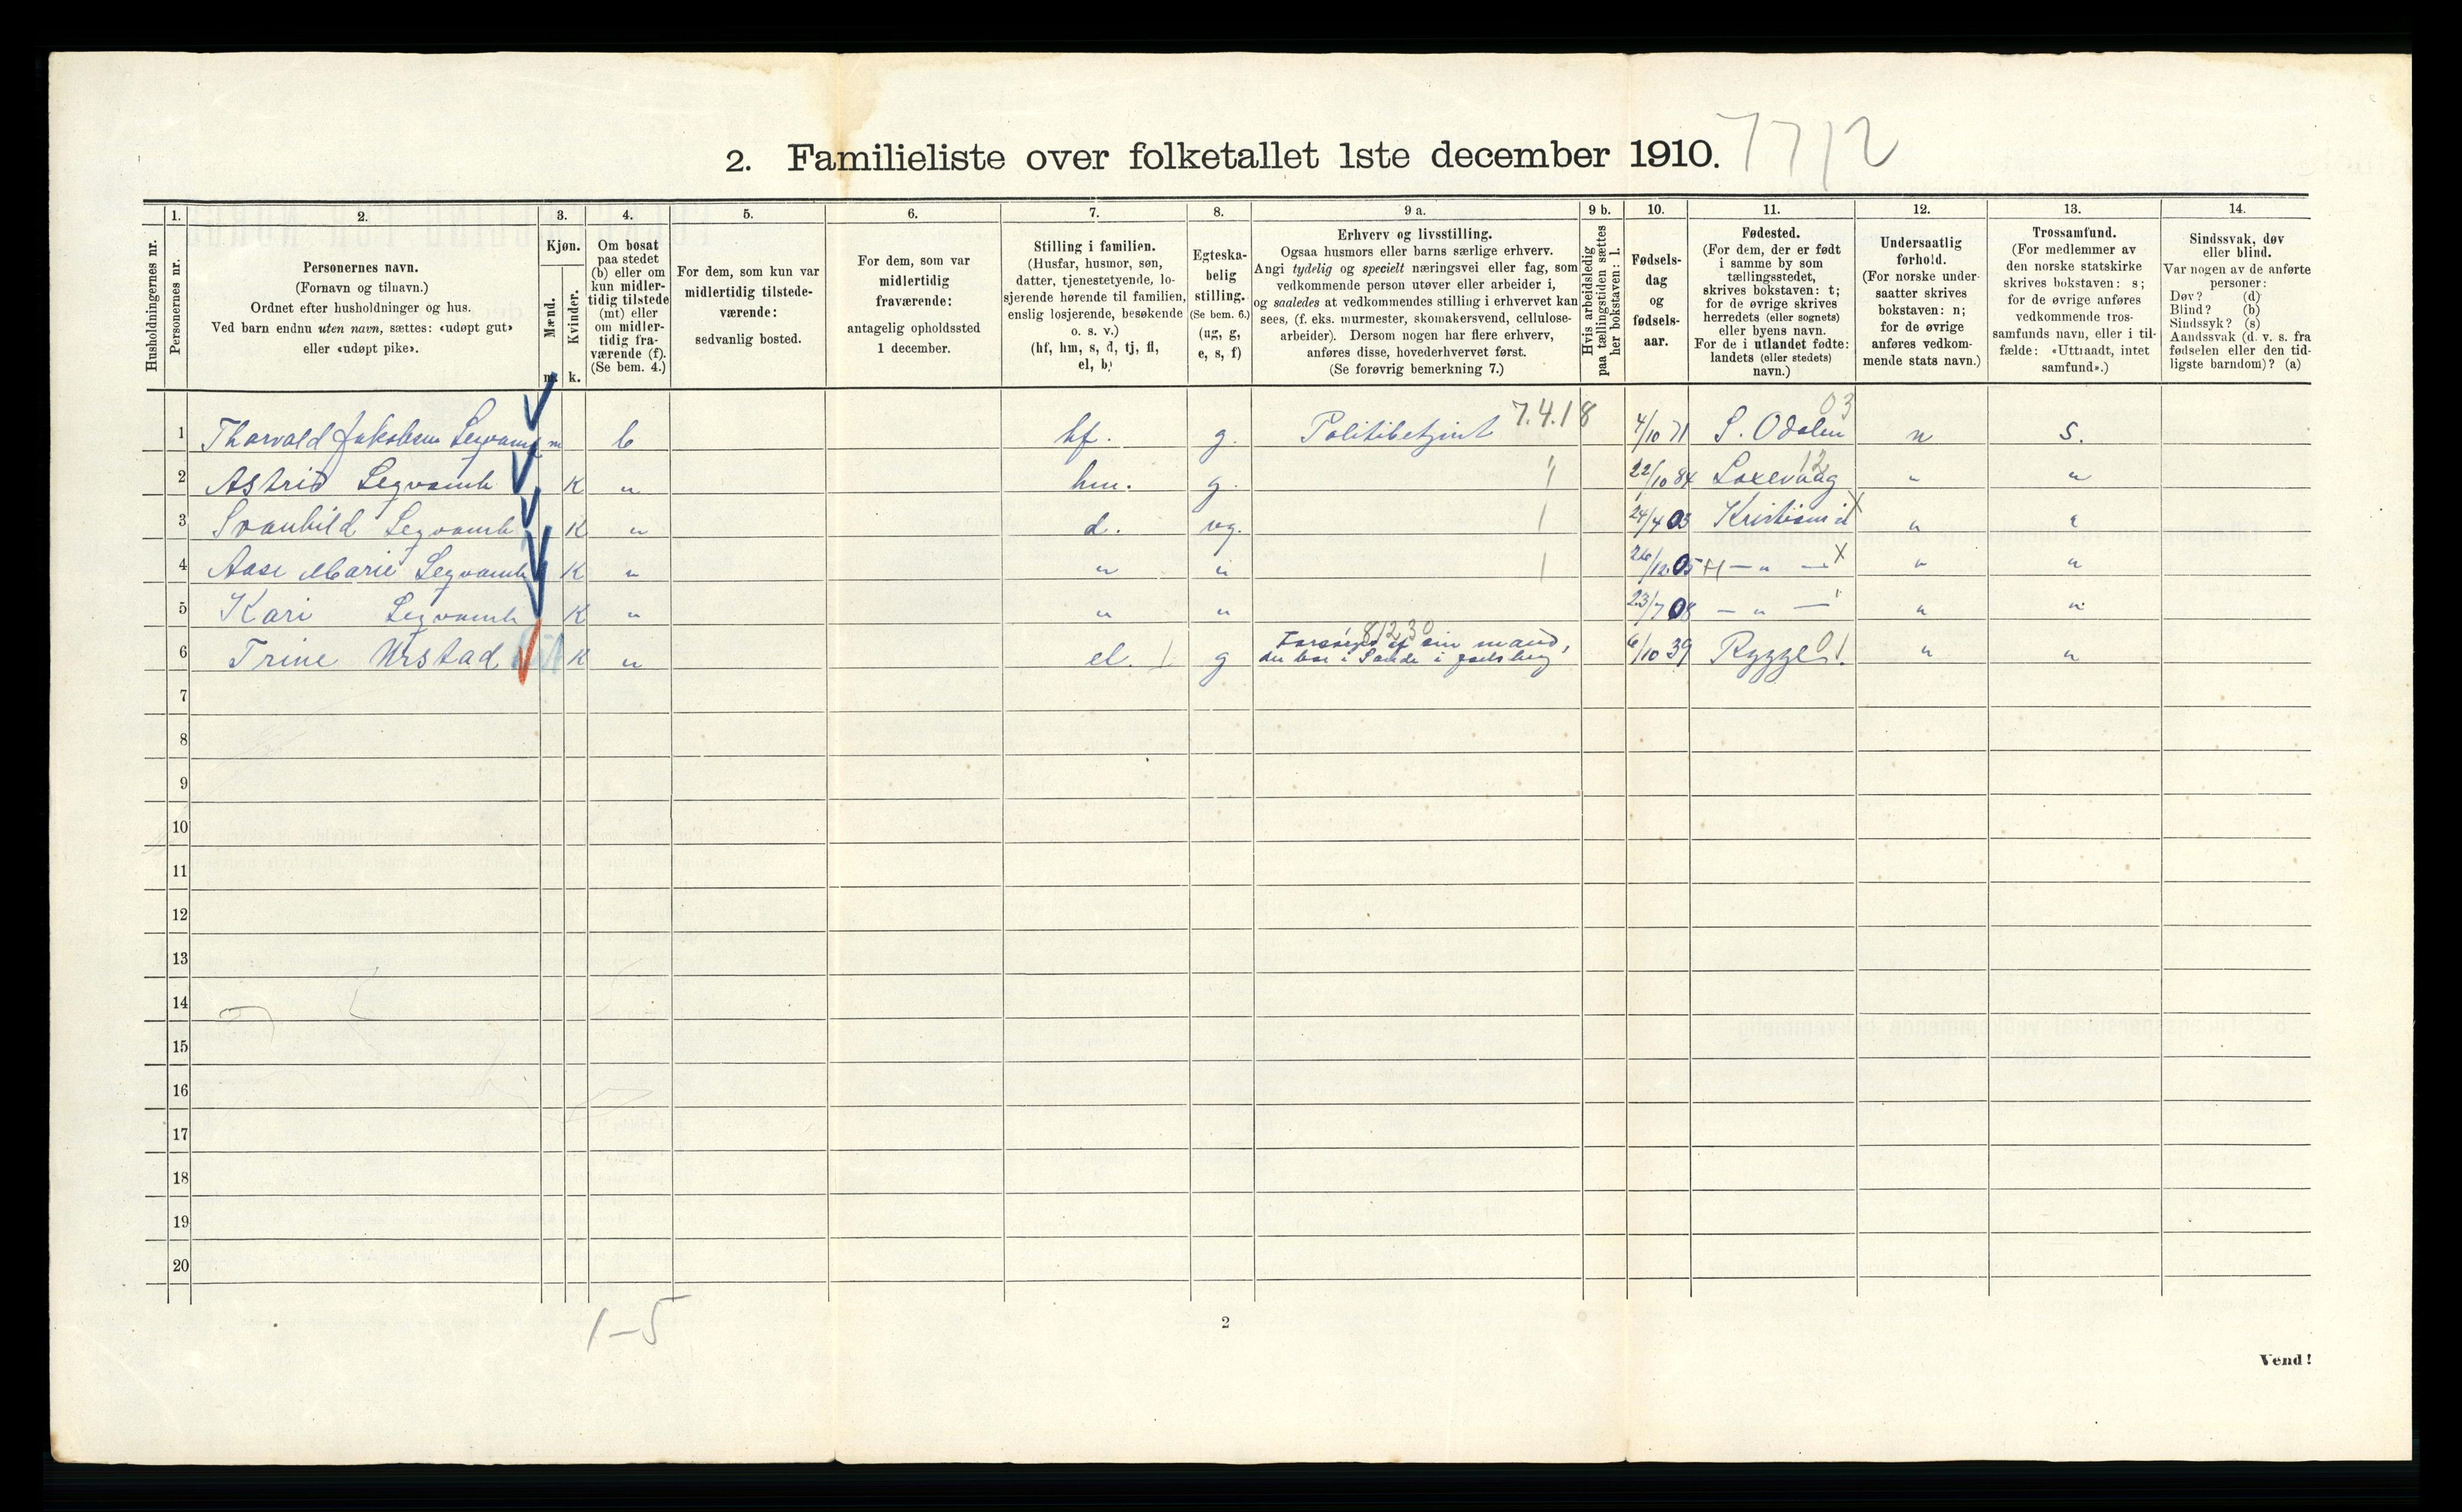 2. Familieliste over folketallet 1ste december 1910. 7712
Husholdningernes nr.
1. Personernes nr.
2. Personernes navn.
(Fornavn og tilnavn.)
Ordnet efter husholdninger og hus.
Ved barn endnu uten navn, sættes: «udøpt gut»
eller «udøpt pike».
3. Kjøn.
Mænd. m.
Kvinder. k.
4. Om bosat
paa stedet
(b) eller om
kun midler-
tidig tilstede
(mt) eller
om midler-
tidig fra-
værende (f).
(Se bem. 4.)
5. For dem, som kun var
midlertidig tilstede-
værende:
sedvanlig bosted.
6. For dem, som var
midlertidig
fraværende:
antagelig opholdssted
1 december.
7. Stilling i familien.
(Husfar, husmor, søn,
datter, tjenestetyende, lo-
sjerende hørende til familien,
enslig losjerende, besøkende
o. s. v.)
(hf, hm, s, d, tj, fl,
el, b)
8. Egteska-
belig
stilling.
(Se bem. 6.)
(ug, g,
e, s, f)
9 a. Erhverv og livsstilling.
Ogsaa husmors eller barns særlige erhverv.
Angi tydelig og specielt næringsvei eller fag, som
vedkommende person utøver eller arbeider i,
og saaledes at vedkommendes stilling i erhvervet kan
sees, (f. eks. murmester, skomakersvend, cellulose-
arbeider). Dersom nogen har flere erhverv,
anføres disse, hovederhvervet først.
(Se forøvrig bemerkning 7.)
9 b. Hvis arbeidsledig
paa tællingstiden sættes
her bokstaven: l.
10. Fødsels-
dag
og
fødsels-
aar.
11. Fødested.
(For dem, der er født
i samme by som
tællingsstedet,
skrives bokstaven: t;
for de øvrige skrives
herredets (eller sognets)
eller byens navn.
For de i utlandet fødte:
landets (eller stedets)
navn.)
12. Undersaatlig
forhold.
(For norske under-
saatter skrives
bokstaven: n;
for de øvrige
anføres vedkom-
mende stats navn.)
13. Trossamfund.
(For medlemmer av
den norske statskirke
skrives bokstaven: s;
for de øvrige anføres
vedkommende tros-
samfunds navn, eller i til-
fælde: «Uttraadt, intet
samfund».)
14. Sindssvak, døv
eller blind.
Var nogen av de anførte
personer:
Døv? (d)
Blind? (b)
Sindssyk? (s)
Aandssvak (d. v. s. fra
fødselen eller den tid-
ligste barndom)? (a)
1 Tharvald Jakobsen m b hf. g. Politibetjent 7.4.18 4/10 71 S. Odalen 03 n s.
2 Astrid Legvamb K " hm. g. 22/10 84 Laxevaag 12 " "
3 Svanhild Legvamb K " d. ug. 24/4 03 Kristiania " "
4 Aase Marie Legvamb K " " " 26/12 05 — " — x " "
5 Kari Legvamb K " " " 23/7 08 — " — " "
6 Trine Urstad K " el. g Forsørges af sin mand, 81230
der bor i Sande i Jarlsberg 6/10 39 Rygge 01. " "
7
8
9
10
11
12
13
14
15
16
17
18
19
20
1-5
2
Vend!